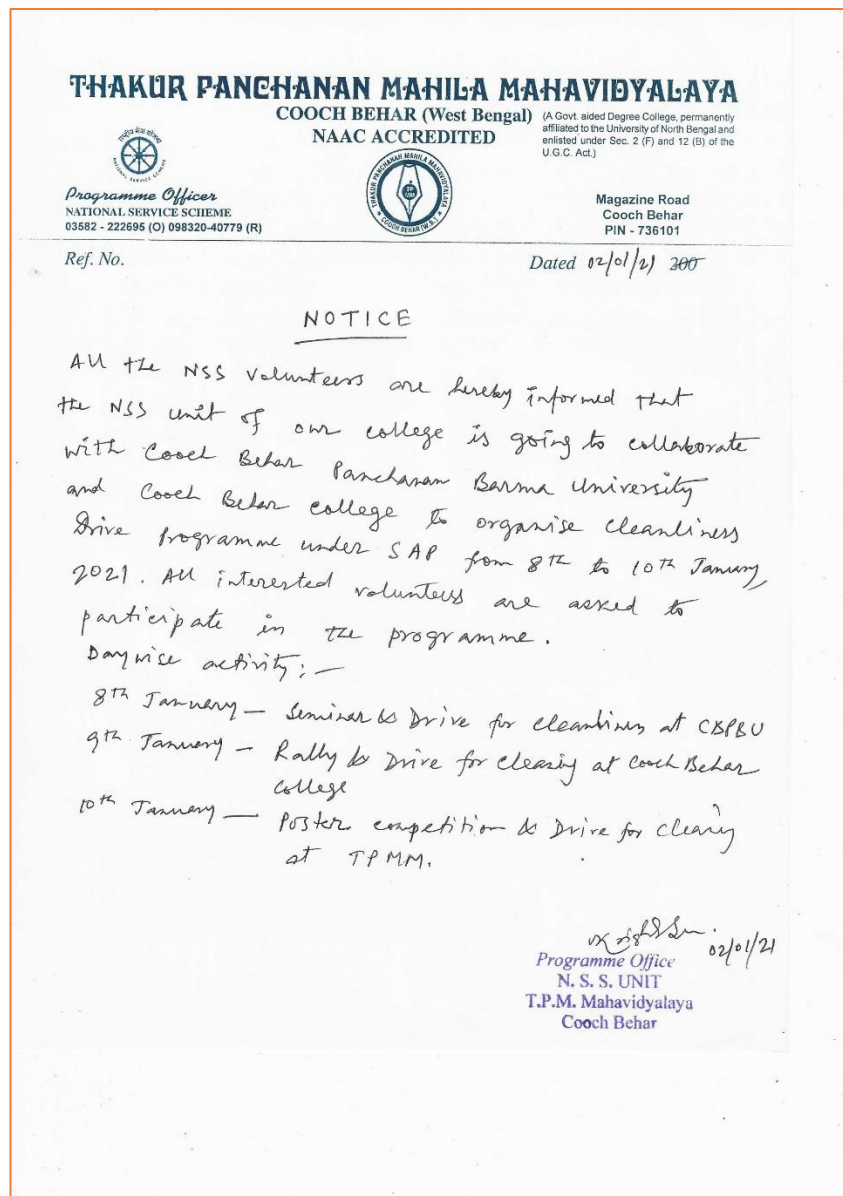 THAKUR PANCHANAN MAHILA MAHAVIDYALAYA
COOCH BEHAR (West Bengal)
NAAC ACCREDITED
(A Govt. aided Degree College, permanently
affiliated to the University of North Bengal and
enlisted under Sec. 2 (F) and 12 (B) of the
U.G.C. Act.)
राष्ट्रीय सेवा योजना
NATIONAL SERVICE SCHEME
THAKUR PANCHANAN MAHILA MAHAVIDYALAYA
COOCH BEHAR (W.B.)
Programme Officer
NATIONAL SERVICE SCHEME
03582 - 222695 (O) 098320-40779 (R)
Magazine Road
Cooch Behar
PIN - 736101
Ref. No.
Dated 02/01/21 200
NOTICE
All the NSS volunteers are hereby informed that
the NSS unit of our college is going to collaborate
with Cooch Behar Panchanan Barma University
and Cooch Behar college to organise cleanliness
Drive Programme under SAP from 8th to 10th January,
2021. All interested volunteers are asked to
participate in the programme.
Daywise activity:—
8th January — Seminar & Drive for cleanliness at CBPBU
9th January — Rally & Drive for cleaning at Cooch Behar
college
10th January — Poster competition & Drive for cleaning
at TPMM.
02/01/21
Programme Office
N. S. S. UNIT
T.P.M. Mahavidyalaya
Cooch Behar